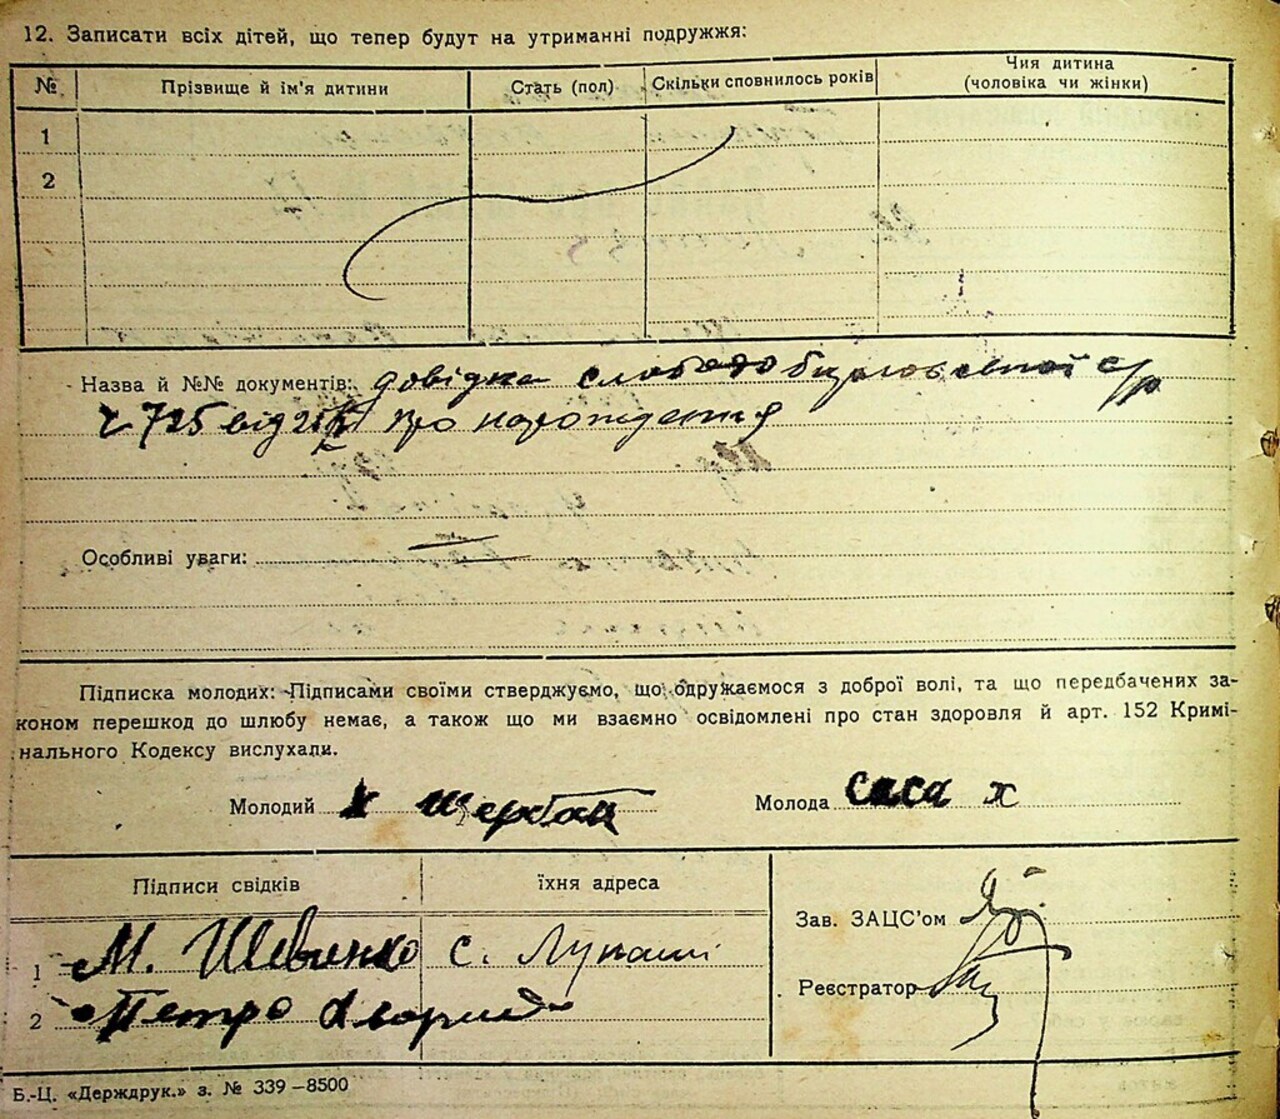 12. Записати всіх дітей, що тепер будут на утриманні подружжя:
№ Прізвище й ім'я дитини Стать (пол) Скільки сповнилось років Чия дитина (чоловіка чи жінки)
1
2
Назва й №№ документів: довідка
725 від про народження
Особливі уваги:
Підписка молодих: Підписами своїми стверджуємо, що одружаємося з доброї волі, та що передбачених за-
коном перешкод до шлюбу немає, а також що ми взаємно освідомлені про стан здоровля й арт. 152 Кримі-
нального Кодексу вислухали.
Молодий х Щербан Молода саса х
Підписи свідків їхня адреса
Зав. ЗАЦС'ом
1 М. Шевченко с. Лупаші
Реєстратор
2 Петро
Б.-Ц. «Держдрук.» з. № 339-8500